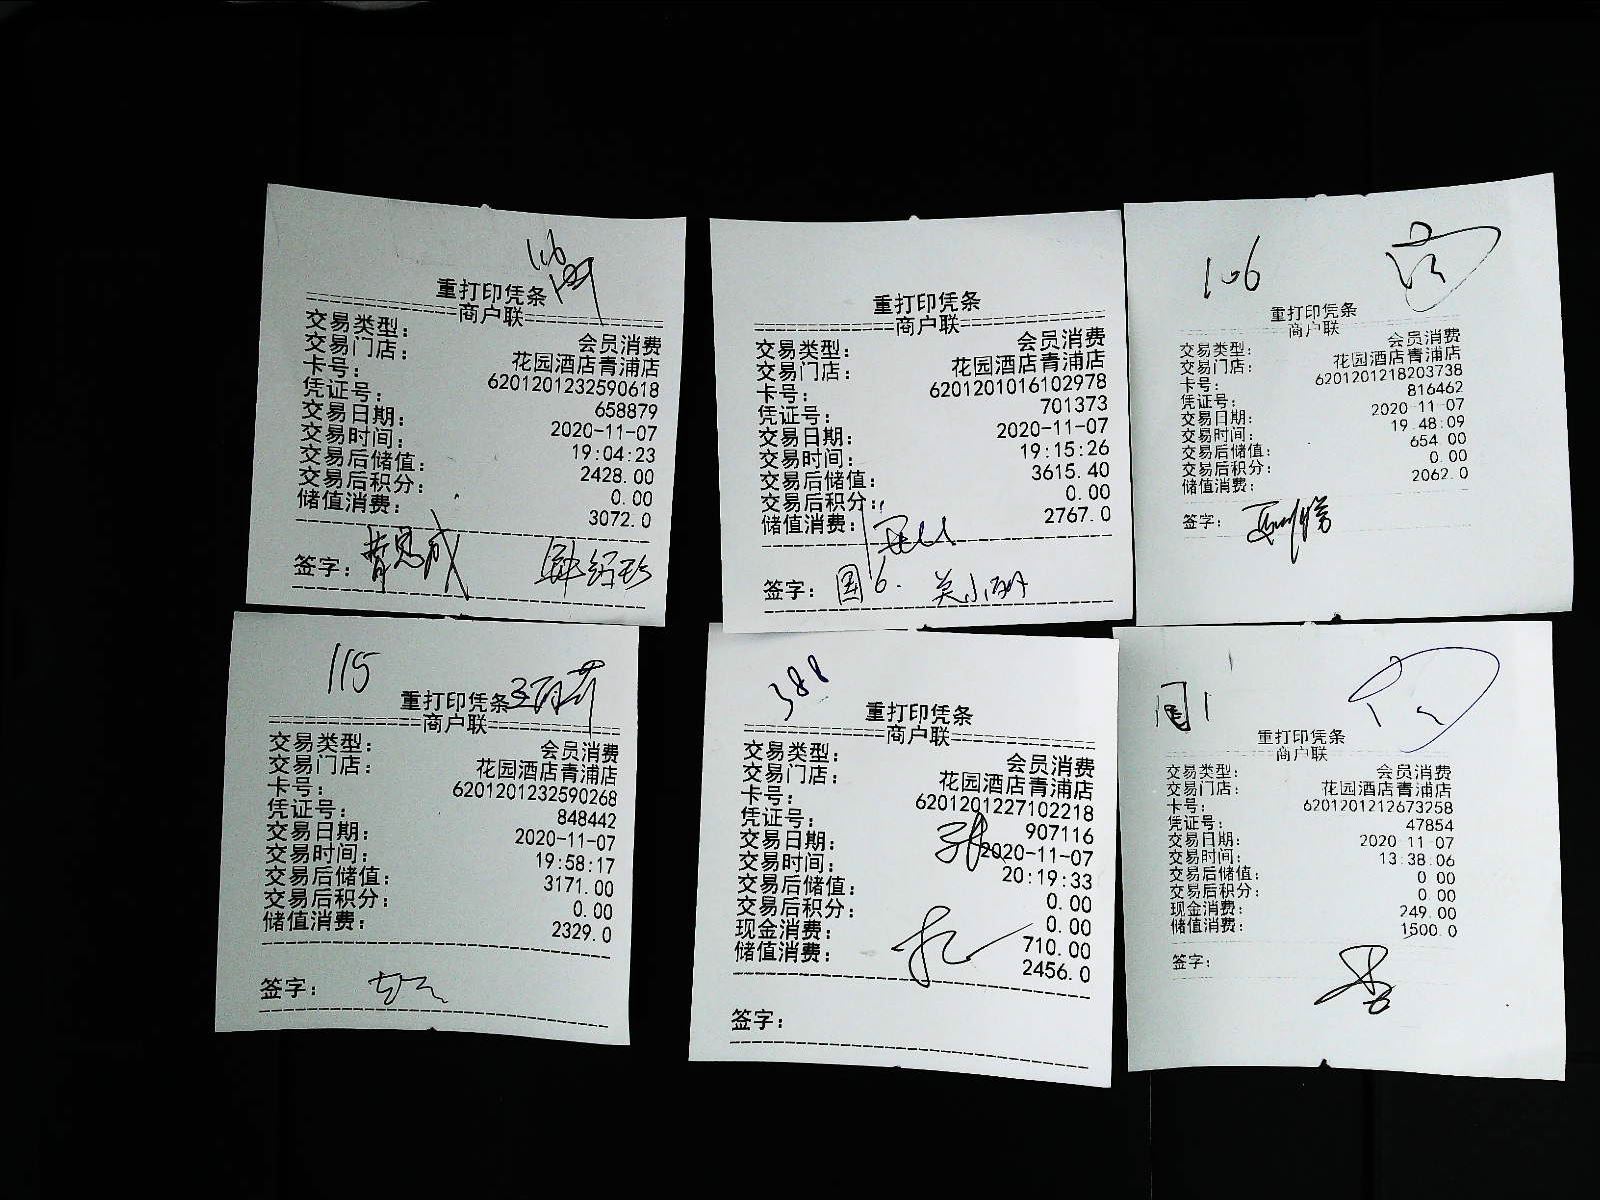 106
重打印凭条
商户联
交易类型: 会员消费
交易门店: 花园酒店青浦店
卡号: 6201201232590618
凭证号: 658879
交易日期: 2020-11-07
交易时间: 19:04:23
交易后储值: 2428.00
交易后积分: 0.00
储值消费: 3072.0
签字:
重打印凭条
商户联
交易类型: 会员消费
交易门店: 花园酒店青浦店
卡号: 6201201016102978
凭证号: 701373
交易日期: 2020-11-07
交易时间: 19:15:26
交易后储值: 3615.40
交易后积分: 0.00
储值消费: 2767.0
签字: 国6. 吴小明
106
重打印凭条
商户联
交易类型: 会员消费
交易门店: 花园酒店青浦店
卡号: 6201201218203738
凭证号: 816462
交易日期: 2020-11-07
交易时间: 19:48:09
交易后储值: 654.00
交易后积分: 0.00
储值消费: 2062.0
签字:
115
重打印凭条
商户联
交易类型: 会员消费
交易门店: 花园酒店青浦店
卡号: 6201201232590268
凭证号: 848442
交易日期: 2020-11-07
交易时间: 19:58:17
交易后储值: 3171.00
交易后积分: 0.00
储值消费: 2329.0
签字:
388
重打印凭条
商户联
交易类型: 会员消费
交易门店: 花园酒店青浦店
卡号: 6201201227102218
凭证号: 907116
交易日期: 2020-11-07
交易时间: 20:19:33
交易后储值: 0.00
交易后积分: 0.00
现金消费: 710.00
储值消费: 2456.0
签字:
国1
重打印凭条
商户联
交易类型: 会员消费
交易门店: 花园酒店青浦店
卡号: 6201201212673258
凭证号: 47854
交易日期: 2020-11-07
交易时间: 13:38:06
交易后储值: 0.00
交易后积分: 0.00
现金消费: 249.00
储值消费: 1500.0
签字: